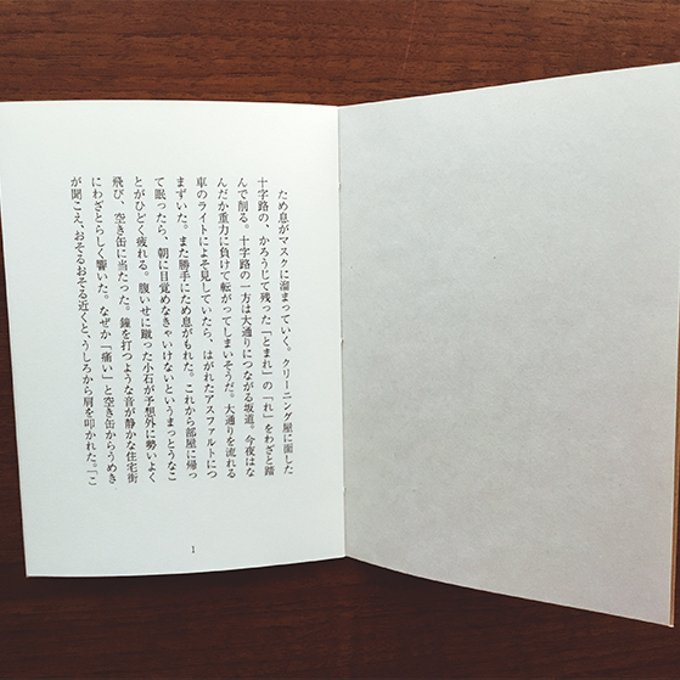 ため息がマスクに溜まっていく。クリーニング屋に面した
十字路の、かろうじて残った「とまれ」の「れ」をわざと踏
んで削る。十字路の一方は大通りにつながる坂道。今夜はな
んだか重力に負けて転がってしまいそうだ。大通りを流れる
車のライトによそ見していたら、はがれたアスファルトにつ
まずいた。また勝手にため息がもれた。これから部屋に帰っ
て眠ったら、朝に目覚めなきゃいけないというまっとうなこ
とがひどく疲れる。腹いせに蹴った小石が予想外に勢いよく
飛び、空き缶に当たった。鐘を打つような音が静かな住宅街
にわざとらしく響いた。なぜか「痛い」と空き缶からうめき
が聞こえ、おそるおそる近くと、うしろから肩を叩かれた。「こ
1